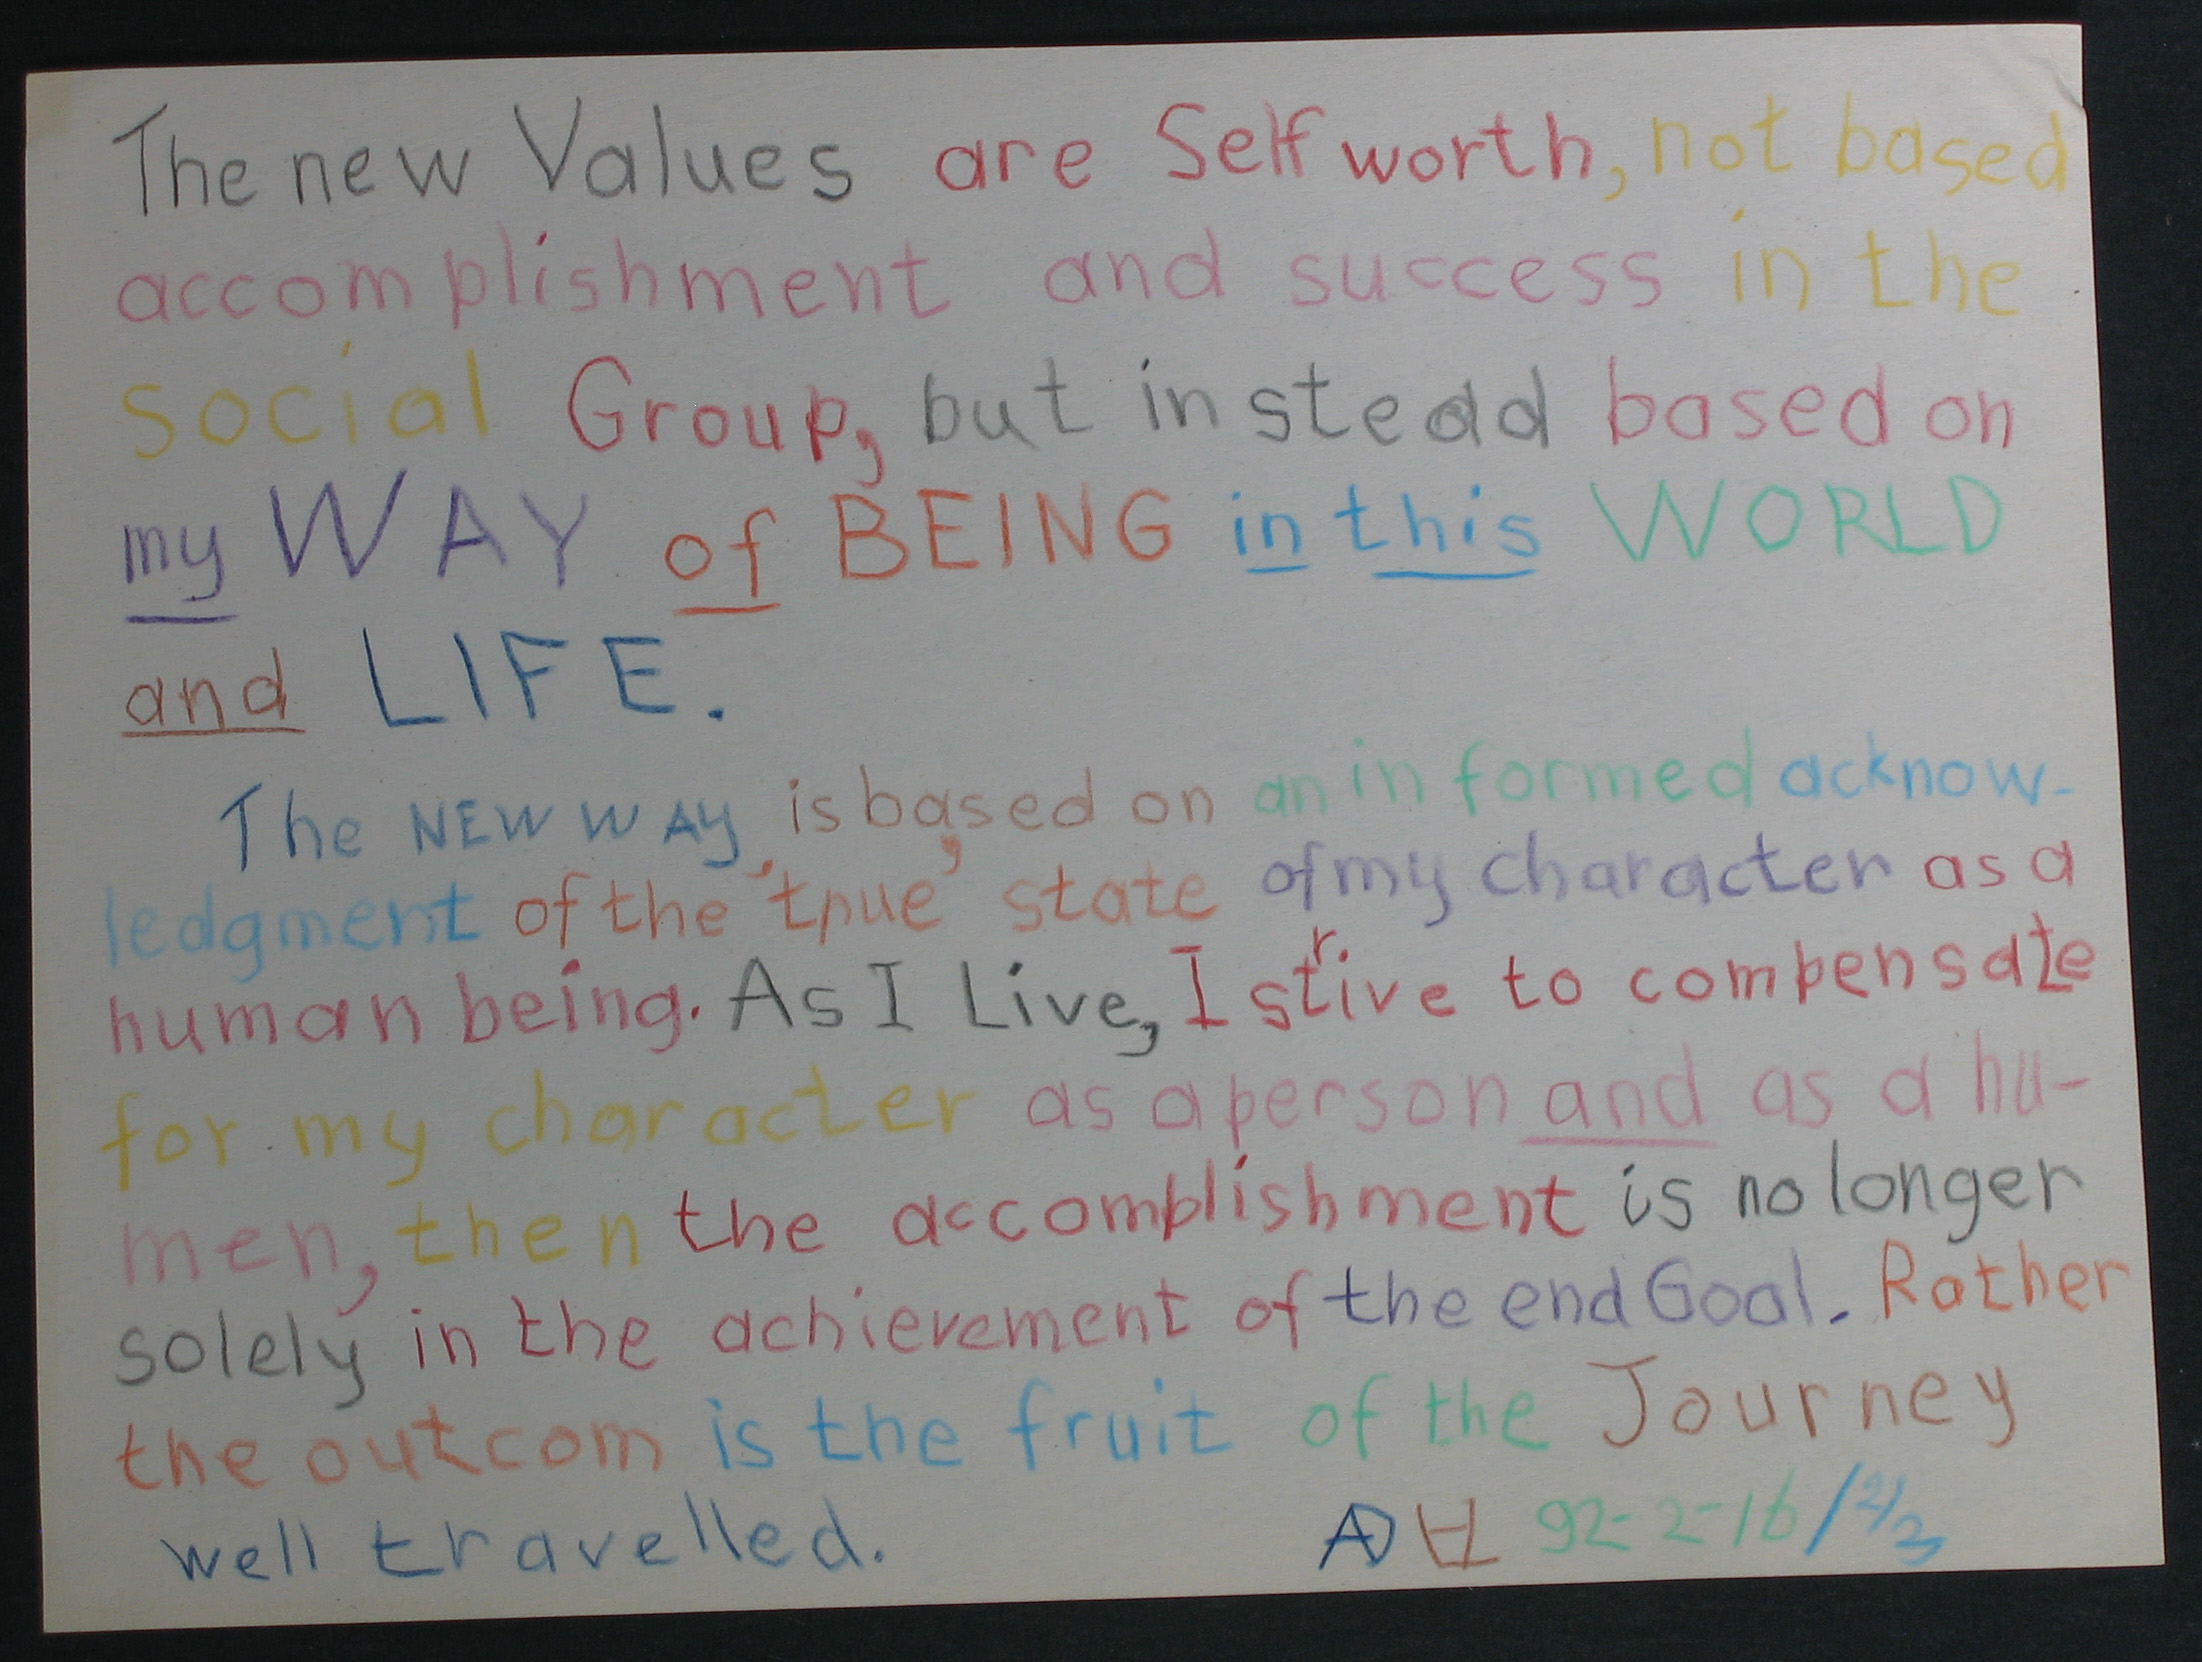 The new Values are Self worth, not based
accomplishment and success in the
social Group, but instead based on
my WAY of BEING in this WORLD
and LIFE.
The NEW WAY, is based on an informed acknow-
ledgment of the 'true' state of my character as a
human being. As I Live, I strive to compensate
for my character as a person and as a hu-
men, then the accomplishment is no longer
solely in the achievement of the end Goal. Rather
the outcom is the fruit of the Journey
well travelled. 92-2-16/2/3